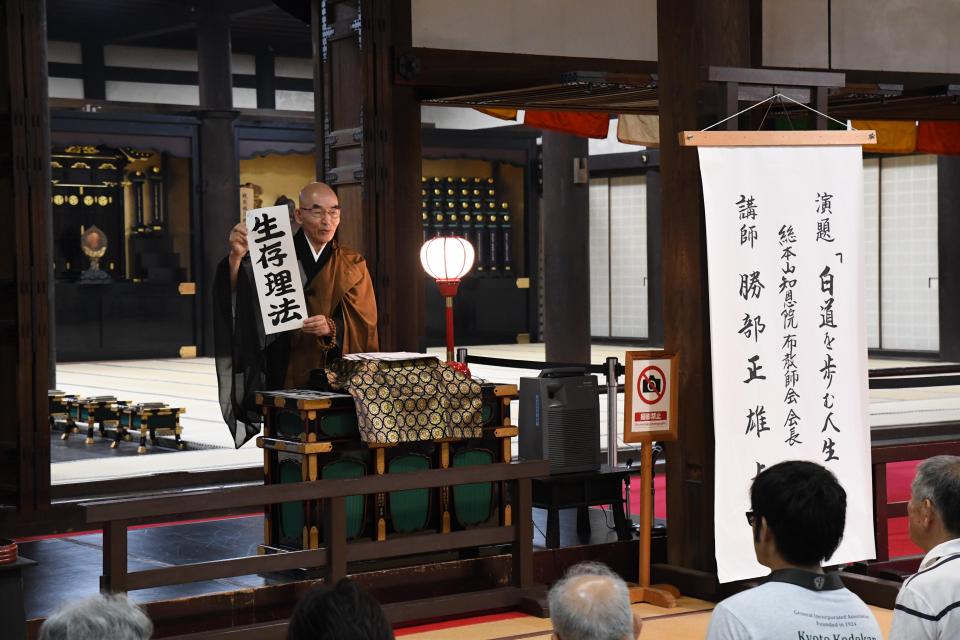 生存理法
演題「白道を歩む人生
総本山知恩院布教師会会長
講師 勝部正雄
撮影禁止
General Incorporated Association
Founded in 1924
Kyoto Kodokan